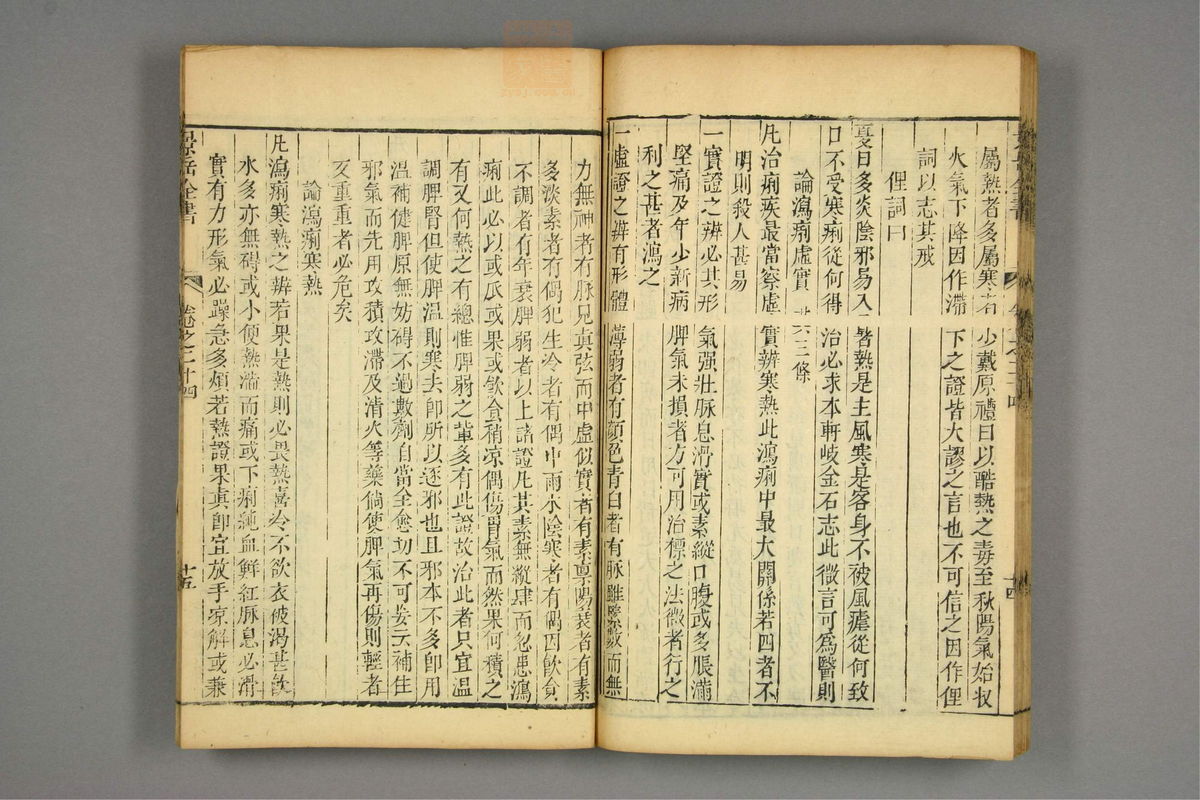 屬熱者多屬寒者少戴原禮曰以酷熱之毒至秋陽氣始收
火氣下降因作滯下之證皆大謬之言也不可信之因作俚
詞以志其戒
俚詞曰
夏日多炎陰邪易入暑熱是主風寒是客身不被風瘧從何致
口不受寒痢從何得治必求本軒岐金石志此微言可爲醫則
論瀉痢虛實 共三條
凡治痢疾最當察虛實辨寒熱此瀉痢中最大關係若四者不
明則殺人甚易
一實證之辨必其形氣强壯脉息滑實或素縱口腹或多脹滿
堅痛及年少新病脾氣未損者方可用治標之法微者行之
利之甚者瀉之
一虛證之辨有形體薄弱者有顏色青白者有脉雖緊數而無
力無神者有脉見真弦而中虛似實者有素禀陽衰者有素
多淡素者有偶犯生冷者有偶中雨水陰寒者有偶因飲食
不調者有年衰脾弱者以上諸證凡其素無縱肆而忽患瀉
痢此必以或瓜或果或飲食稍凉偶傷胃氣而然果何積之
有又何熱之有總惟脾弱之輩多有此證故治此者只宜温
調脾腎但使脾温則寒去即所以逐邪也且邪本不多即用
温補健脾原無妨碍不過數劑自當全愈切不可妄云補住
邪氣而先用攻積攻滯及清火等藥倘使脾氣再傷則輕者
反重重者必危矣
論瀉痢寒熱
凡瀉痢寒熱之辨若果是熱則必畏熱喜冷不欲衣被渴甚飲
水多亦無碍或小便熱澁而痛或下痢純血鮮紅脉息必滑
實有力形氣必躁急多煩若熱證果真即宜放手凉解或兼
景岳全書
卷之二十四
十五